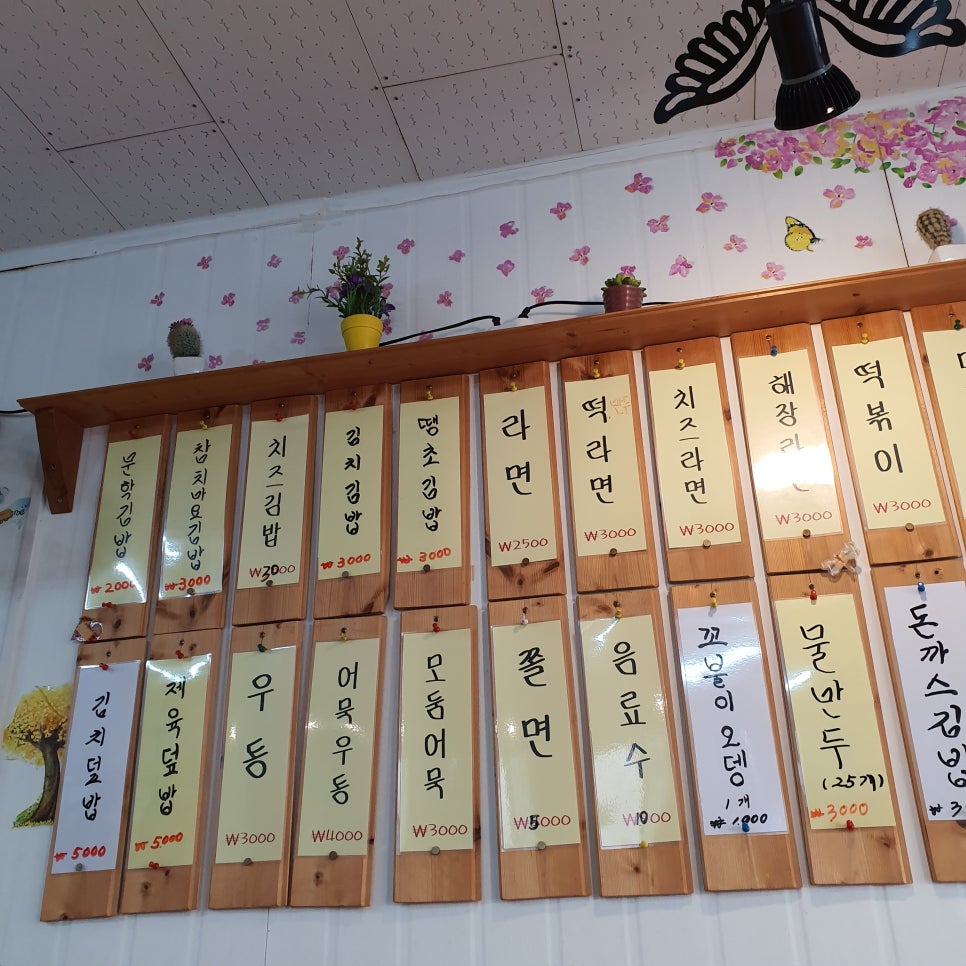 문학김밥
₩2000
참치마요김밥
₩3000
치즈김밥
₩3000
김치김밥
₩3000
땡초김밥
₩3000
라면
₩2500
떡라면
₩3000
치즈라면
₩3000
해장라면
₩3000
떡볶이
₩3000
김치덮밥
₩5000
제육덮밥
₩5000
우동
₩3000
어묵우동
₩4000
모둠어묵
₩3000
쫄면
₩5000
음료수
₩1000
꼬불이오뎅
1개
₩1,000
물만두
(25개)
₩3000
돈까스김밥